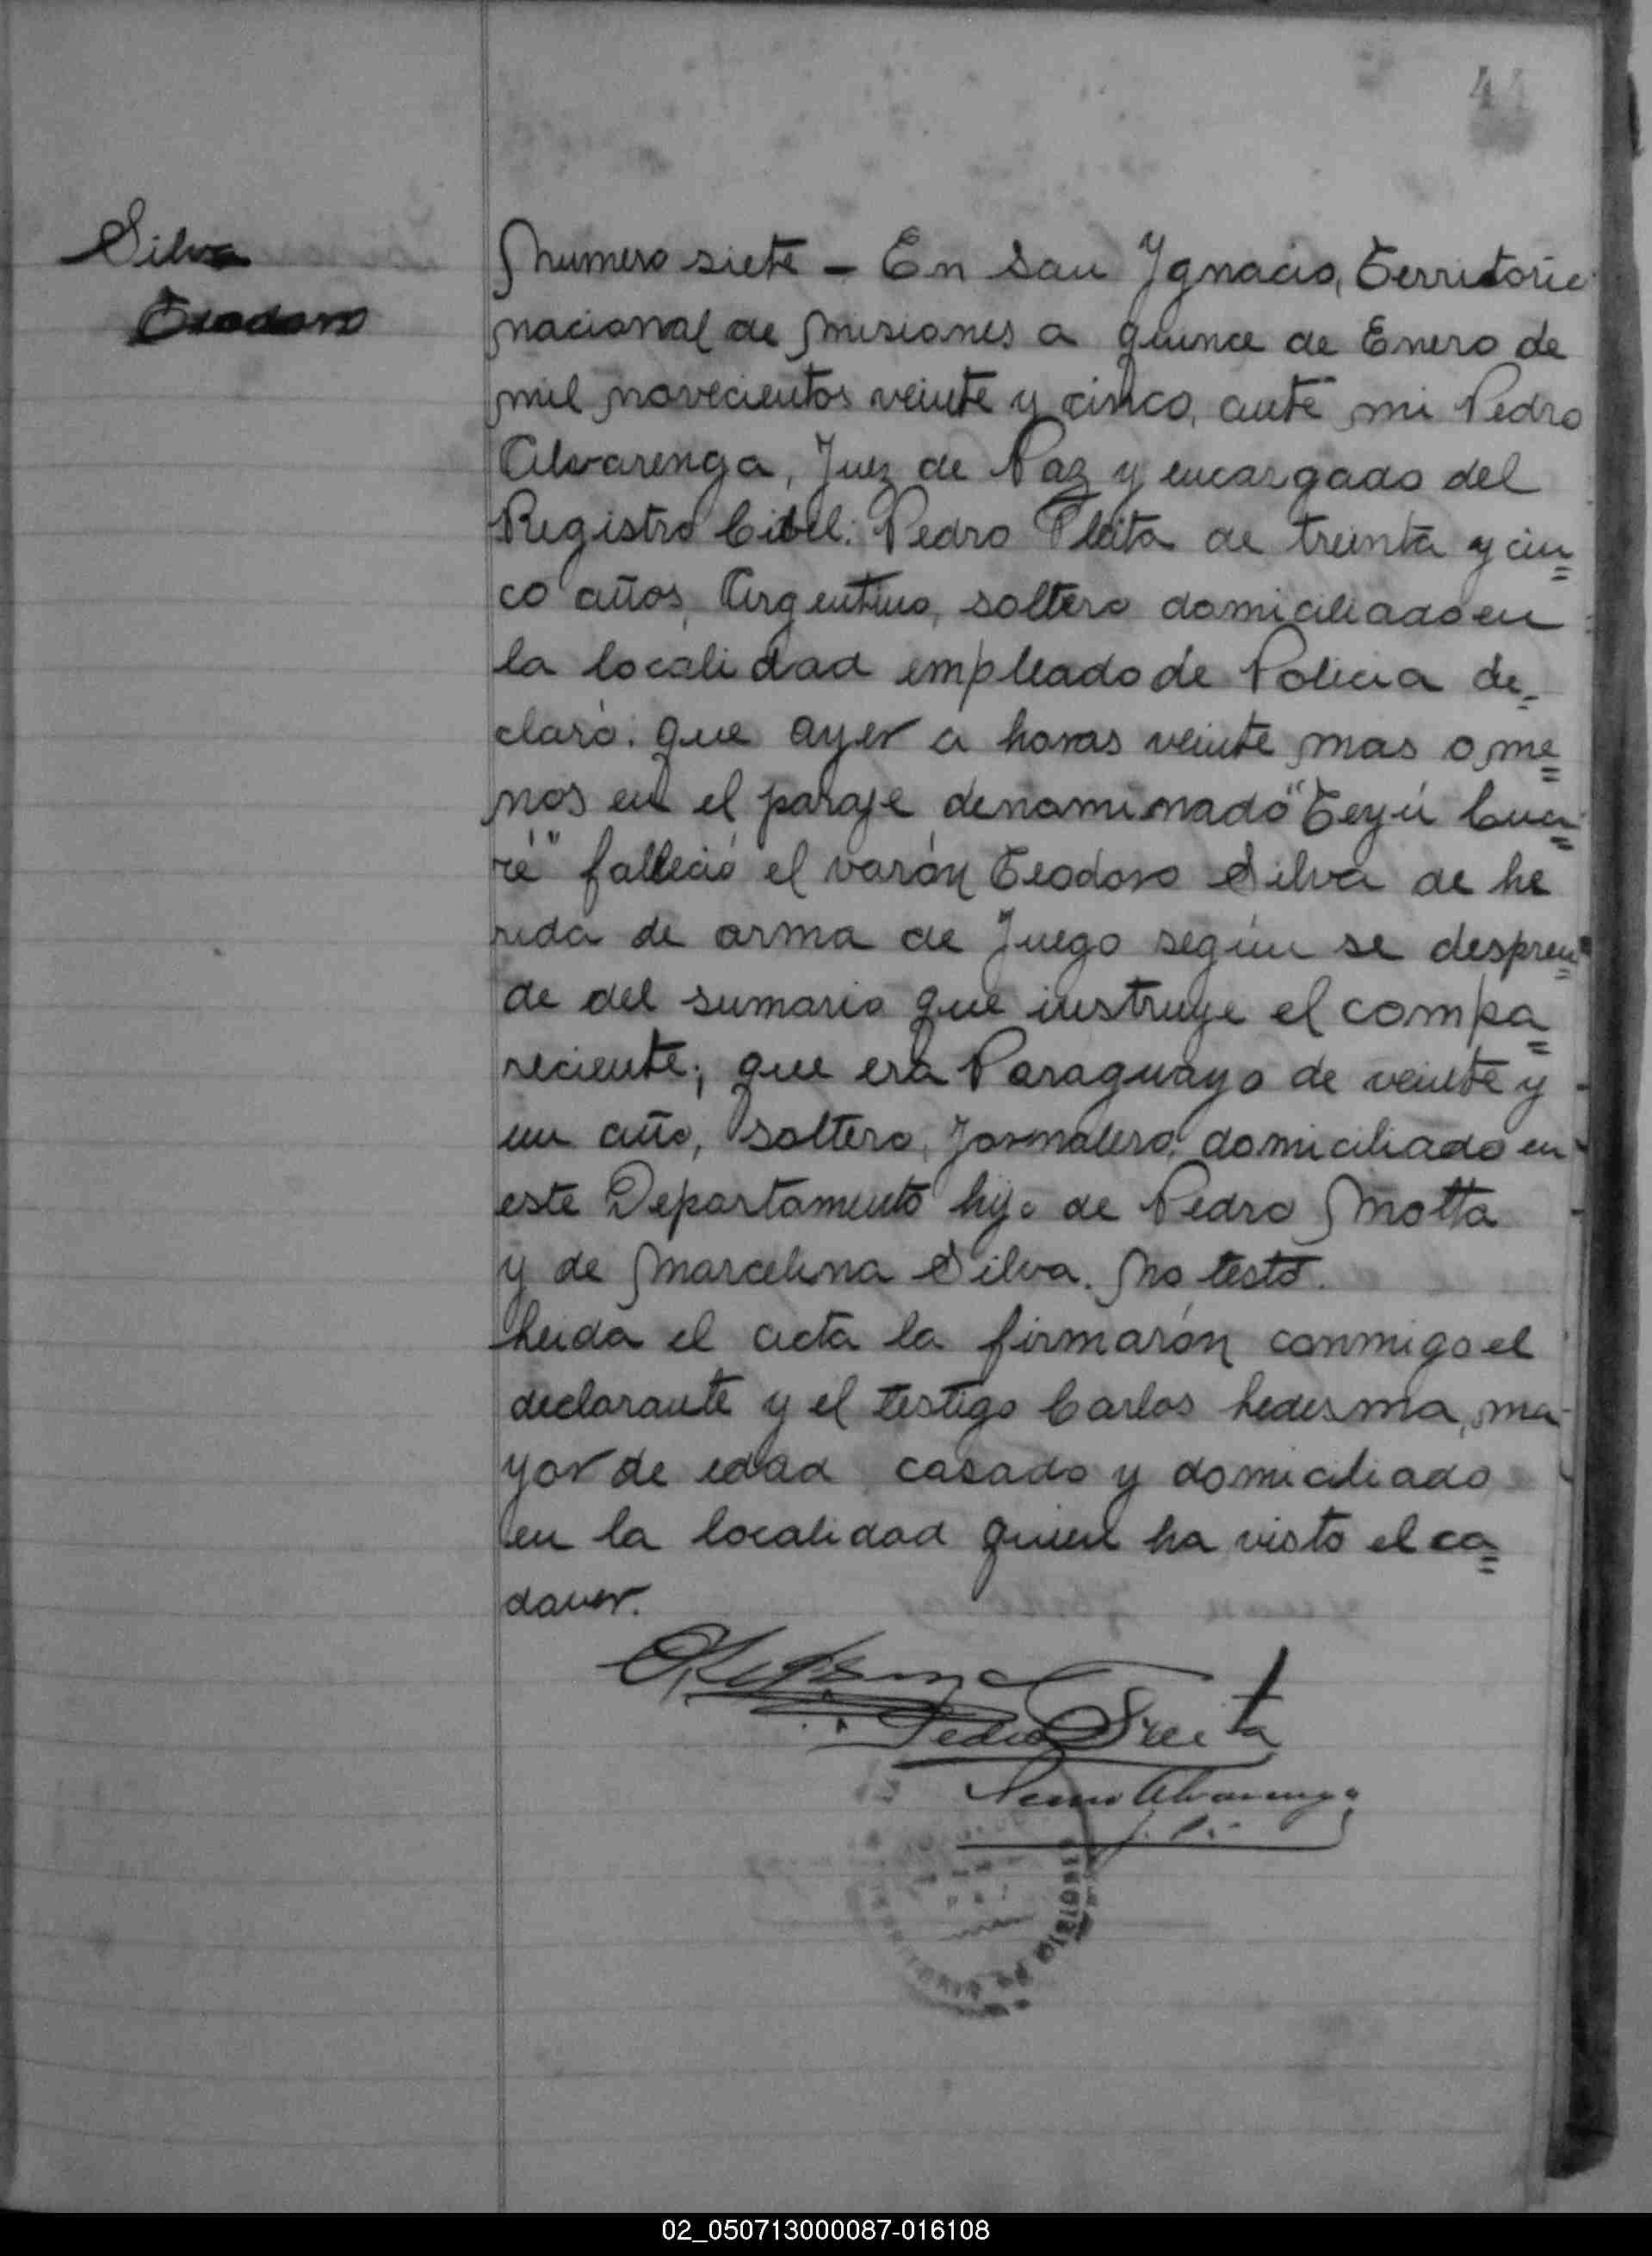 44
Silva
Teodoro
Numero siete - En San Ygnacio, Territorio
nacional de Misiones a quince de Enero de
mil novecientos veinte y cinco, ante mi Pedro
Alvarenga, Juez de Paz y encargado del
Registro Civil: Pedro Fleita de treinta y cin=
co años, Argentino, soltero domiciliado en
la localidad empleado de Policia de=
claró: que ayer a horas veinte mas o me=
nos en el paraje denominado "Teyú Cua=
ré" falleció el varón Teodoro Silva de he
rida de arma de Juego según se despren=
de del sumario que instruye el compa=
reciente; que era Paraguayo de veinte y
un año, soltero, Jornalero, domiciliado en
este Departamento hijo de Pedro Motta
y de Marcelina Silva. No testó.
Leida el acta la firmarón conmigo el
declarante y el testigo Carlos Ledesma, ma-
yor de edad casado y domiciliado
en la localidad quien ha visto el ca=
daver.
Pedro Fleita
Pedro Alvarenga
J. P.
02_050713000087-016108